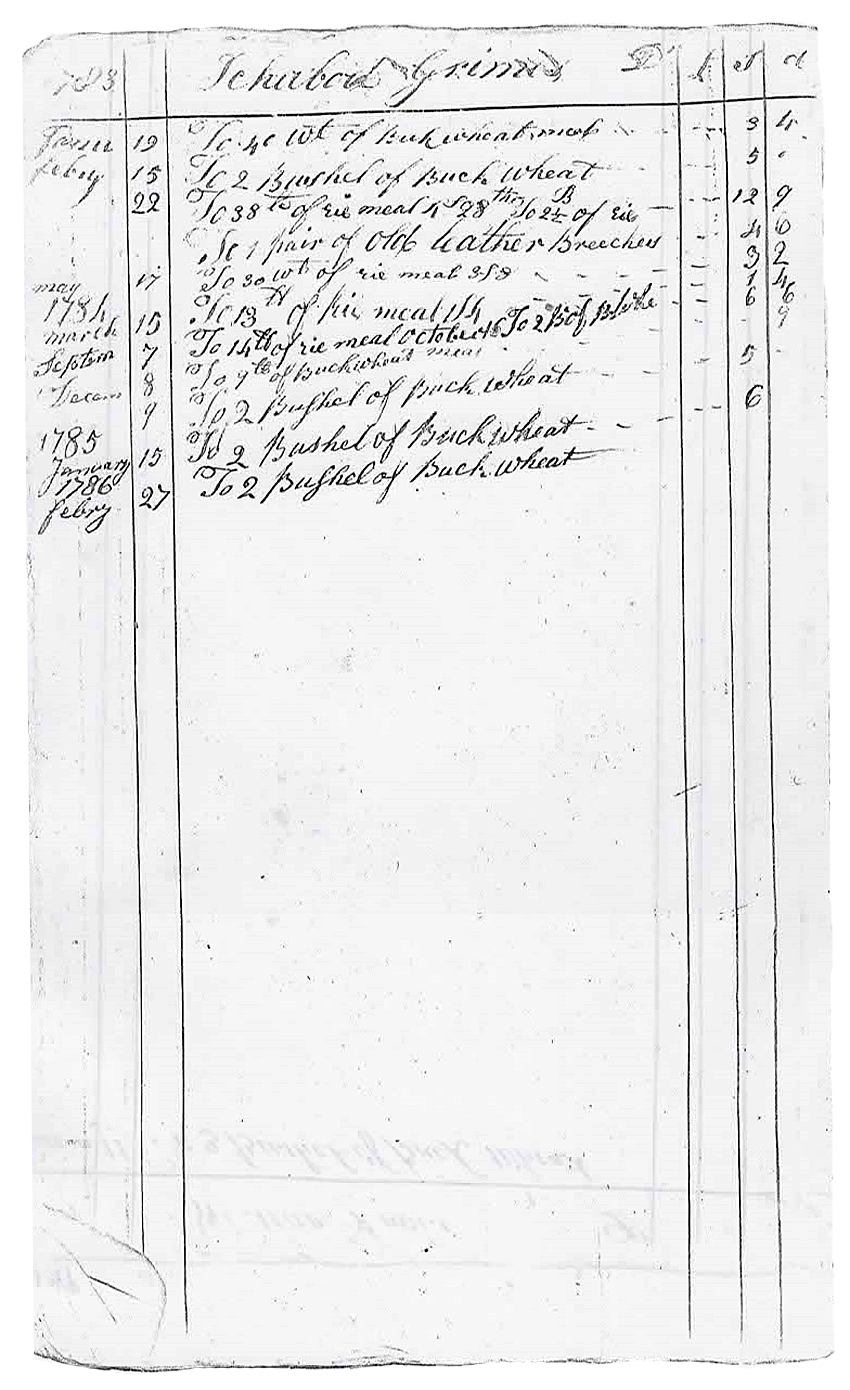 1783 Ichabod Grimes Dr £ s d
Janu 19 To 40 wt of Buckwheat meal 3 4
febry 15 To 2 Bushel of Buck wheat 5
22 To 38 tt of rie meal 4s 28 To 2½ B of rie 12 9
To 1 pair of old leather Breeches 4 6
may 17 To 30 wt of rie meal 3 2
1784
march 15 To 13 tt of rie meal 1s4 1 4
Septem 7 To 14 tt of rie meal October To 2 B of B whe 6 6
Decem 8 To 9 tt of Buckwheat meal 9
9 To 2 Bushel of Buck wheat 5
1785
January 15 To 2 Bushel of Buck wheat 6
1786
febry 27 To 2 Bushel of Buck wheat